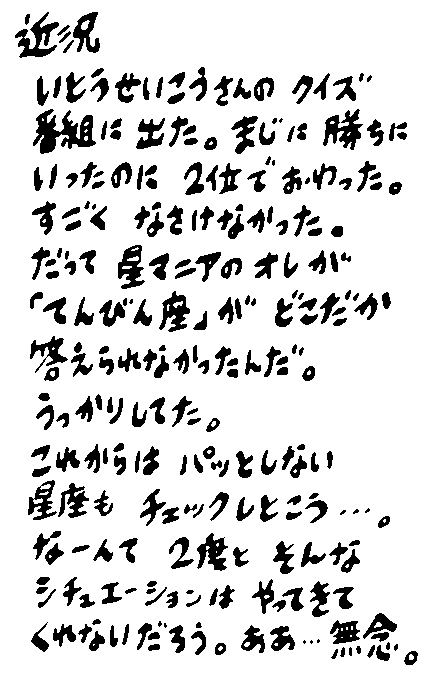 近況
いとうせいこうさんの クイズ
番組に 出た。まじに 勝ちに
いったのに 2位で おわった。
すごく なさけなかった。
だって 星マニアの オレが
「てんびん座」が どこだか
答えられなかったんだ。
うっかりしてた。
これからは パッとしない
星座も チェックしとこう…。
なーんて 2度と そんな
シチュエーションは やってきて
くれないだろう。ああ…無念。